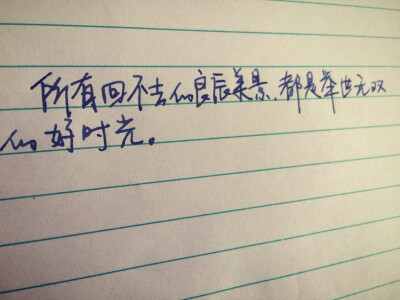 所有回不去的良辰美景,都是举世无双
的好时光。